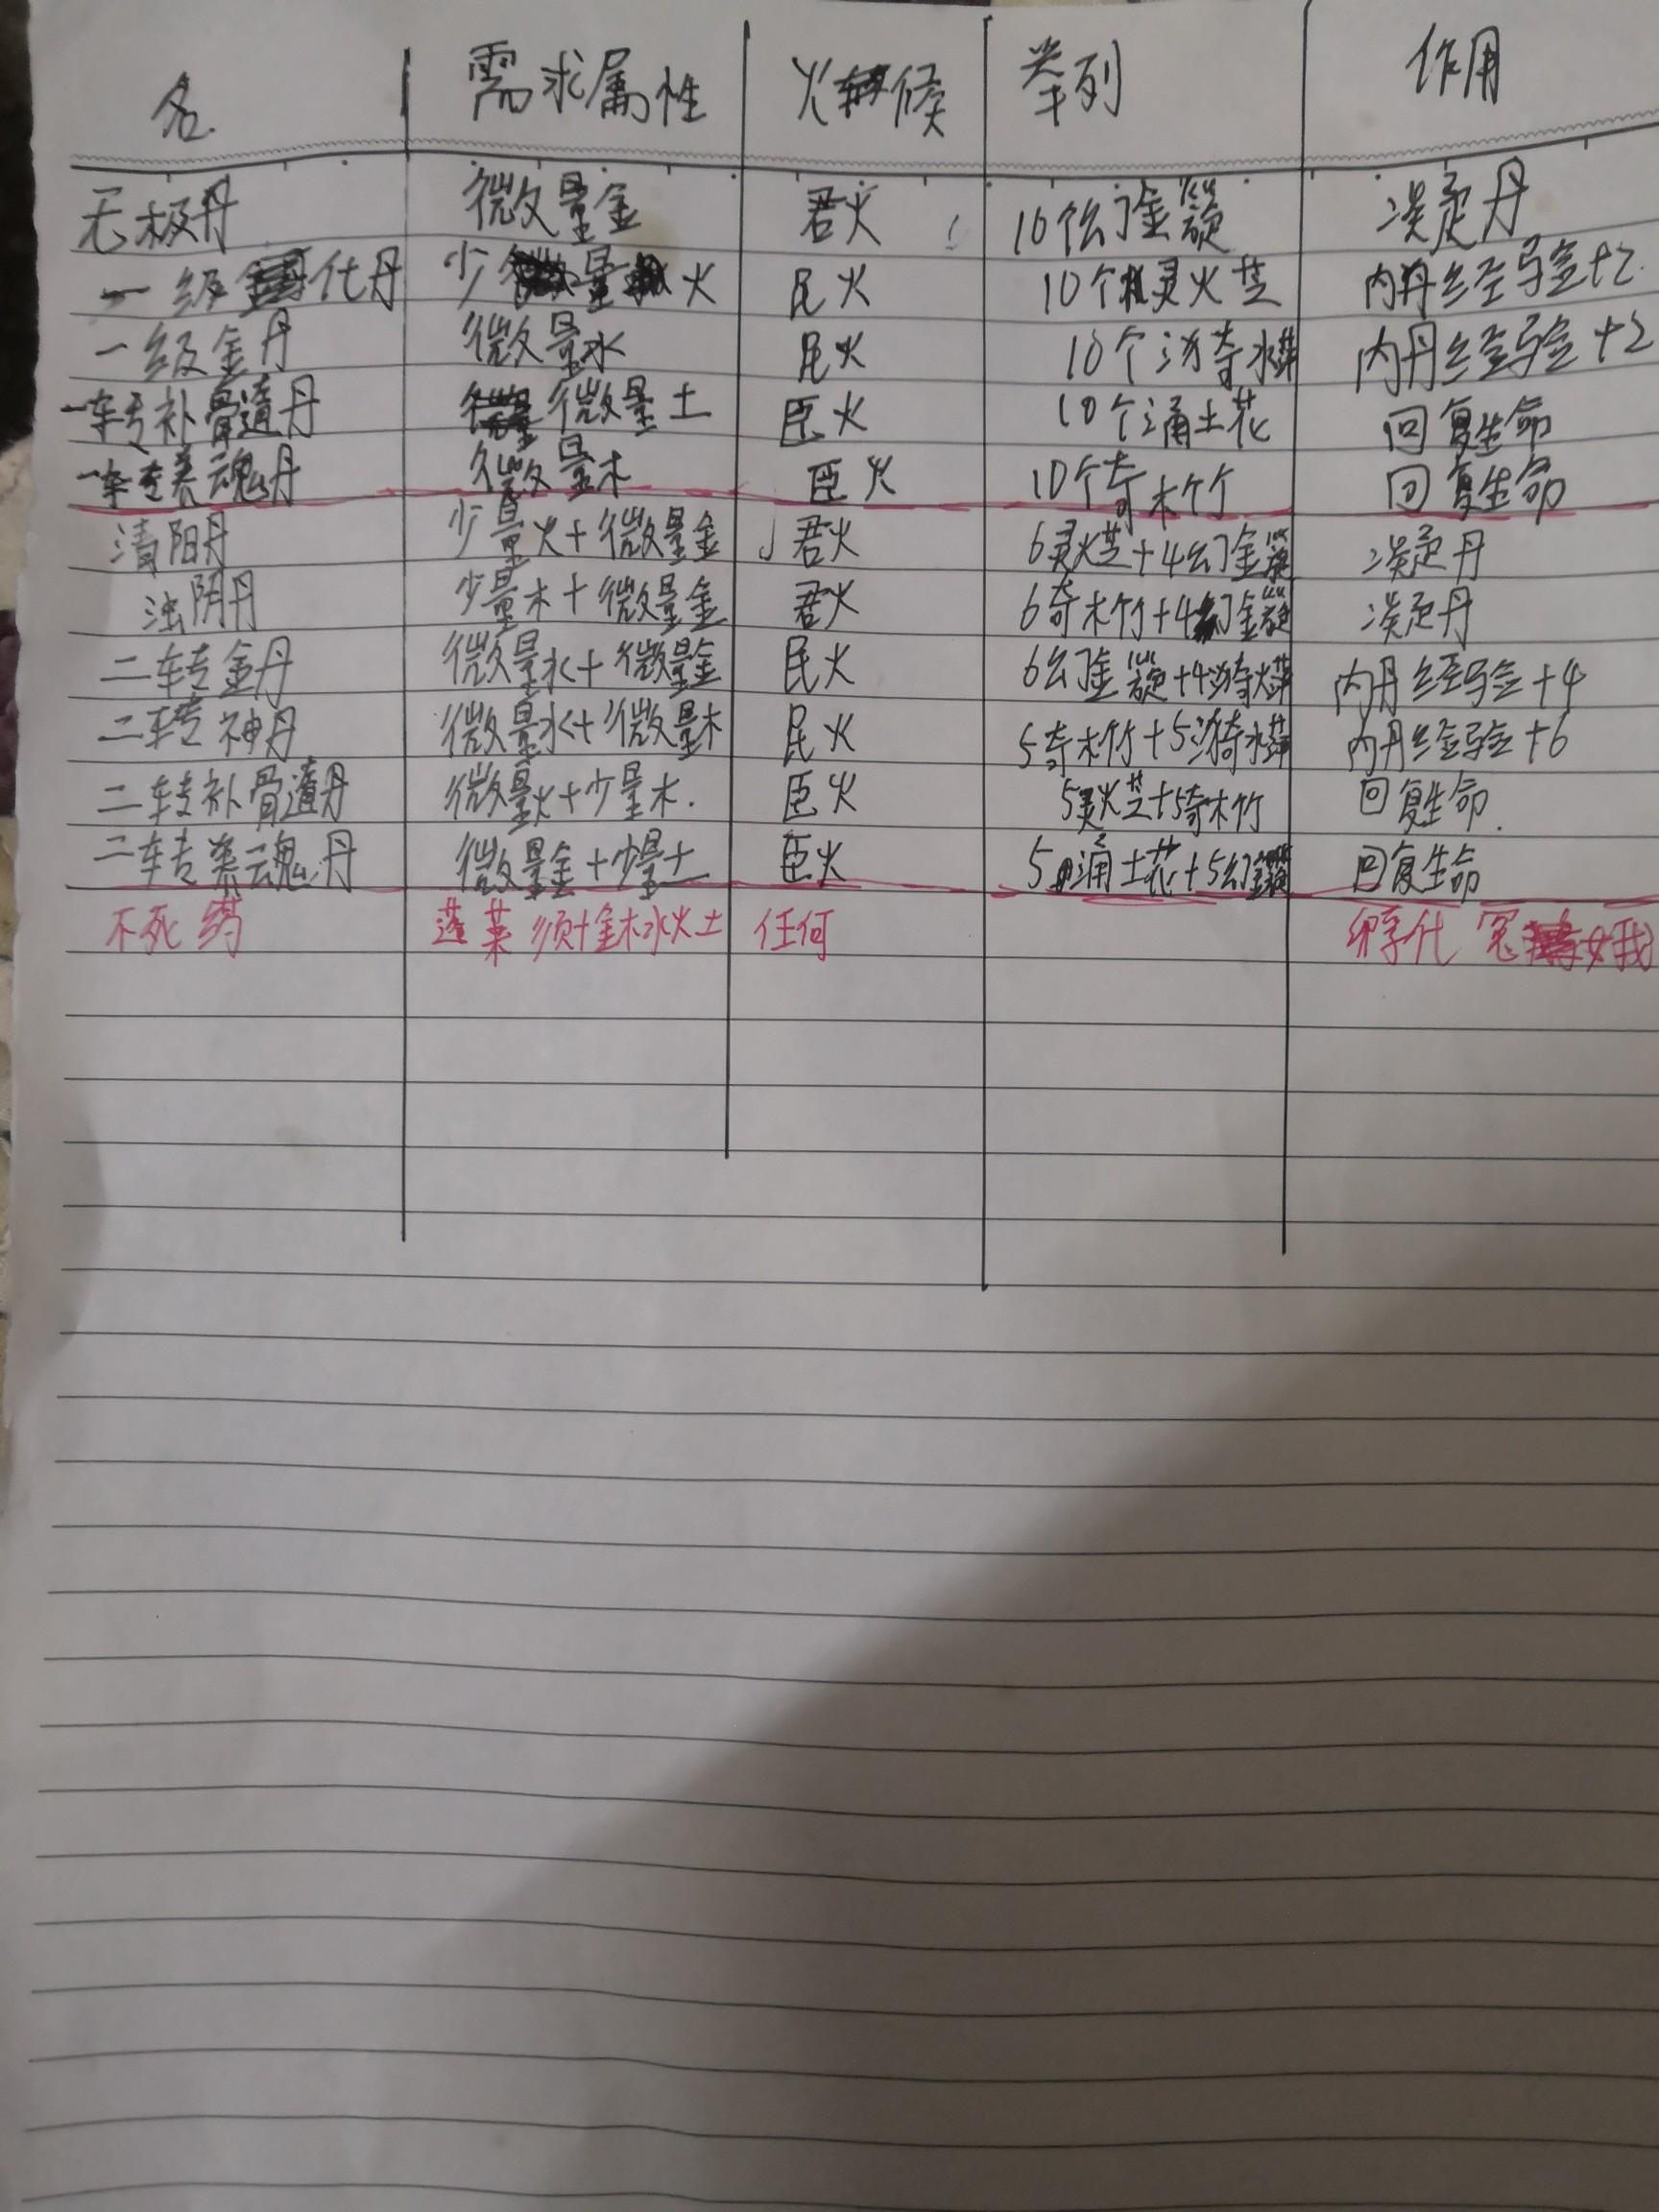 名 需求属性 火候 举列 作用
无极丹 微量金 君火 10个幻金 丹
一级化丹 少量火 民火 10个灵火芝 内丹经验+2
一级金丹 微量水 民火 10个 内丹经验+2
一转补骨丹 微量土 臣火 10个涌土花 回复生命
一转养魂丹 微量木 臣火 10个奇木竹 回复生命
清阳丹 少量火+微量金 君火 6灵火芝+4幻金 丹
浊阴丹 少量木+微量金 君火 6奇木竹+4幻金 丹
二转金丹 微量水+微量金 民火 6幻金+4 内丹经验+4
二转神丹 微量水+微量木 民火 5奇木竹+5 内丹经验+6
二转补骨丹 微量火+少量木. 臣火 5灵火芝+5奇木竹 回复生命.
二转养魂丹 微量金+少量土 臣火 5涌土花+5幻金 回复生命
不死药 蓬莱须+金木水火土 任何 孵化